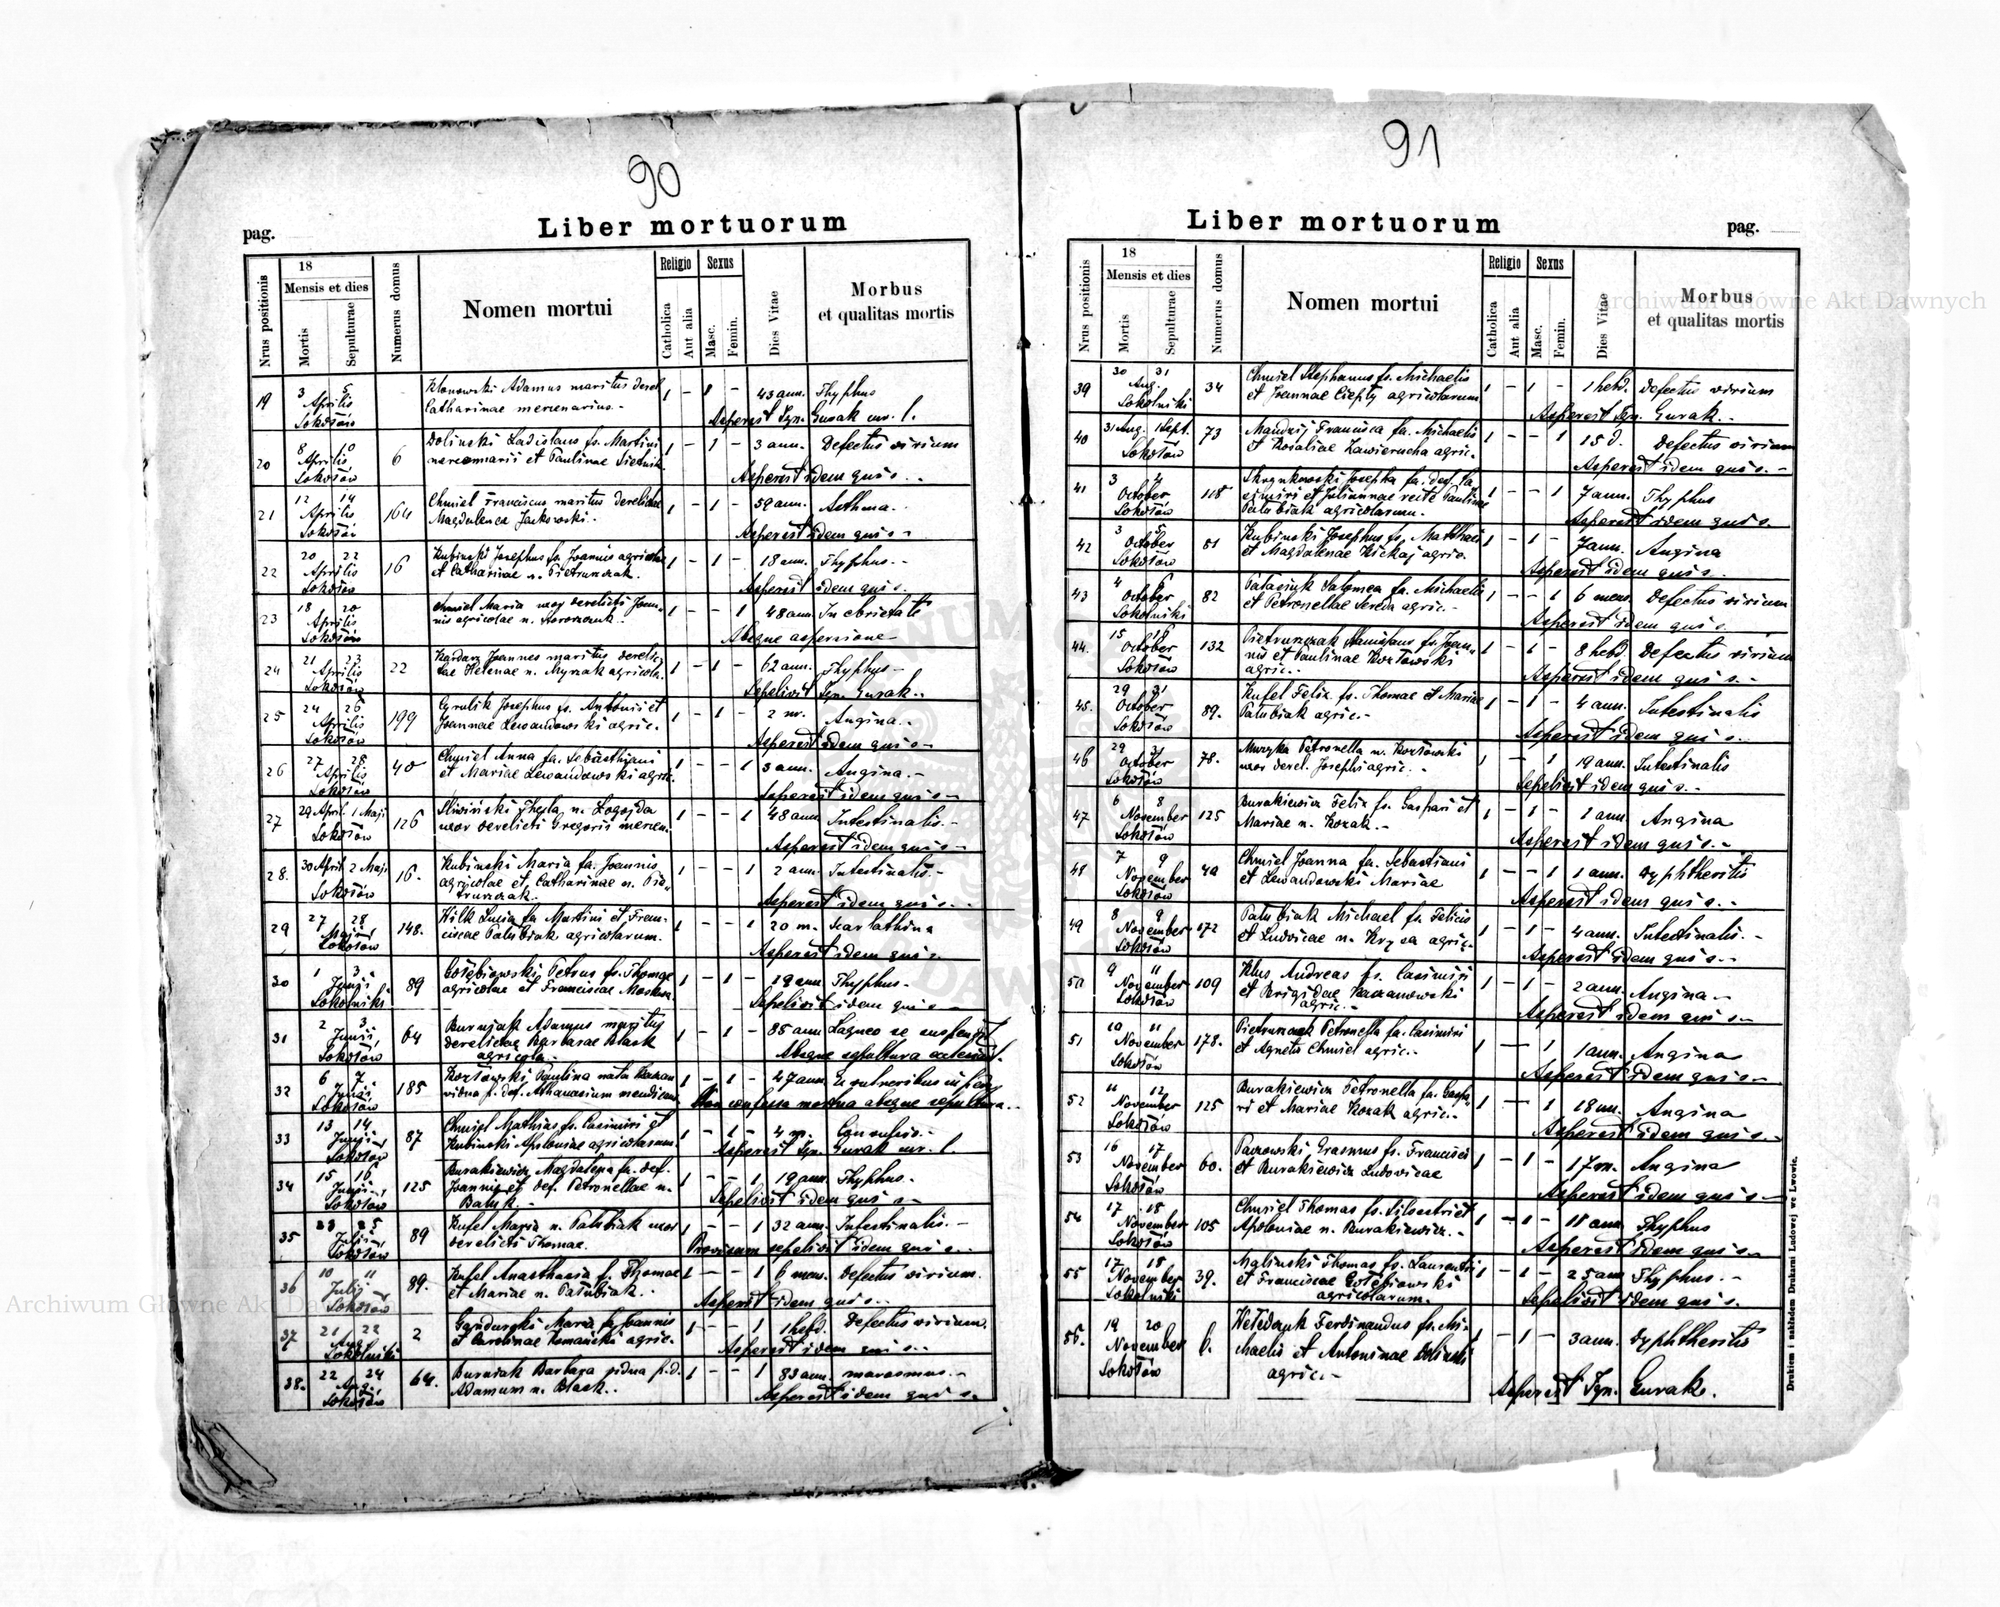 90
pag.
Liber mortuorum
Nrus positionis
18
Mensis et dies
Mortis
Sepulturae
Numerus domus
Nomen mortui
Religio
Catholica
Aut alia
Sexus
Masc.
Femin.
Dies Vitae
Morbus
et qualitas mortis
19 3 Aprilis 5 Adamus maritus derel. 1 – 1 – 43 ann. Thyphus
Sokołów Catharinae mercenarius.- Asperest Ign. Gurak cur. l.
20 8 Aprilis 10 6 Doliński Ladislaus fs. Martini 1 – 1 – 3 ann. Defectus virium
Sokołów mercenarii et Paulinae Asperest idem qui s.
21 12 Aprilis 14 164 Chmiel Franciscus maritus derelictae 1 – 1 – 59 ann. Asthma.
Sokołów Magdalenea Jankowski. Asperest idem qui s –
22 20 Aprilis 22 16 Kubiński Josephus fs. Joannis agricolae 1 – 1 – 18 ann. Thyphus.-
Sokołów et Catharinae n. Pietrunczak. Asperest idem qui s.
23 18 Aprilis 20 Chmiel Maria uxor derelicti Joan- 1 – – 1 48 ann. In ebrietate
Sokołów nis agricolae n. Absque aspersione –
24 21 Aprilis 23 22 Joannes maritus derelic- 1 – 1 – 62 ann. Thyphus –
Sokołów tae Helenae n. agricola. Sepelivit Ign. Gurak.
25 24 Aprilis 26 199 Cyrulik Josephus fs. Antonii et 1 – 1 – 2 m. Angina.-
Sokołów Joannae Lewandowski agric. Asperest idem qui s –
26 27 Aprilis 28 40 Chmiel Anna fa. Sebasthiani 1 – – 1 3 ann. Angina.-
Sokołów et Mariae Lewandowski agric. Asperest idem qui s –
27 29 April. 1 Maji 126 Śliwiński Thecla n. Łogojda 1 – – 1 48 ann. Intestinalis.-
Sokołów uxor derelicti Gregorii mercen. Asperest idem qui s –
28. 30 April. 2 Maji 16. Kubiński Maria fa. Joannis 1 – – 1 2 ann. Intestinalis.-
Sokołów agricolae et Catharinae n. Pie-
trunczak. Asperest idem qui s.
29 27 Maji 28 148. Hilk Lucia fa Martini et Fran- 1 – – 1 20 m. Scarlathina
Sokołów ciscae Patubiak agricolarum. Asperest idem qui s.
30 1 Junii 3 89 Gołębiowski Petrus fs. Thomae 1 – 1 – 19 ann. Thyphus-
Sokolniki agricolae et Franciscae Sepelivit idem qui s –
31 2 Junii 3 64 Burniak Adamus maritus 1 – 1 – 85 ann. Laqueo se suspensit
Sokołów derelictae Barbarae Black
agricola. Absque sepultura
32 6 Junii 7 185 Kozłowski Paulina nata 1 – 1 – 47 ann. Ex vulneribus
Sokołów vidua p. def. Athanasium Non confessa mortua absque sepultura.
33 13 Junii 14 87 Chmiel Mathias fs. Casimiri et 1 – 1 – 4 m. Convulsio.-
Sokołów Kubiński Apoloniae agricolarum. Asperest Ign. Gurak cur. l.
34 15 Junii 16 125 Burakiewicz Magdalena fa. def. 1 – – 1 19 ann. Thyphus.-
Sokołów Joannis et def. Petronellae n. Sepelivit idem qui s –
35 23 Julii 25 89 Kufel Maria n. Patubiak uxor 1 – – 1 32 ann. Intestinalis.-
Sokołów derelicti Thomae. Provisam sepelivit idem qui s –
36 10 Julii 11 89. Kufel Anasthasia f. Thomae 1 – – 1 6 mens. Defectus virium.
Sokołów et Mariae n. Patubiak. Asperest idem qui s.
37 21 Aug. 22 2 Maria fa Joannis 1 – – 1 1 hebd. Defectus virium.
Sokolniki et Carolinae agric. Asperest idem qui s.
38. 22 Aug. 24 64. Burniak Barbara vidua p. d. 1 – – 1 83 ann. marasmus.-
Sokołów Adamum n. Black. Asperest idem qui s.
91
Liber mortuorum
pag.
Nrus positionis
18
Mensis et dies
Mortis
Sepulturae
Numerus domus
Nomen mortui
Religio
Catholica
Aut alia
Sexus
Masc.
Femin.
Dies Vitae
Morbus
et qualitas mortis
39 30 Aug. 31 34 Chmiel Stephanus fs. Michaelis 1 – 1 – 1 hebd. Defectus virium
Sokolniki et Joannae Ciepły agricolarum Asperest Ign. Gurak.-
40 31 Aug. 1 Sept. 73 Francisca fa. Michaelis 1 – – 1 15 d. Defectus virium
Sokołów et Rosaliae Zawierucha agric. Asperest idem qui s.-
41 3 October 4 118 Josepha fa. def. Ca- 1 – – 1 7 ann. Thyphus
Sokołów simiri et Juliannae recte Paulinae
Patubiak agricolarum. Asperest idem qui s.
42 3 October 5 81 Kubiński Josephus fs. Matthaei 1 – 1 – 7 ann. Angina
Sokołów et Magdalenae agric. Asperest idem qui s.
43 4 October 6 82 Salomea fa. Michaelis 1 – – 1 6 mens. Defectus virium
Sokolniki et Petronellae Sereda agric.- Asperest idem qui s.
44. 15 October 16 132 Pietrunczak Stanislaus fs. Joan- 1 – 1 – 8 hebd. Defectus virium
Sokołów nis et Paulinae Kozłowski
agric. Asperest idem qui s.-
45. 29 October 31 89. Kufel Felix fs. Thomae et Mariae 1 – 1 – 4 ann. Intestinalis
Sokołów Patubiak agric.- Asperest idem qui s.-
46 29 October 31 78. Muzyka Petronella n. Kozłowski 1 – – 1 19 ann. Intestinalis
Sokołów uxor derel. Josephi agric.- Sepelivit idem qui s.-
47 6 November 8 125 Burakiewicz Felix fs. Gaspari et 1 – 1 – 1 ann. Angina
Sokołów Mariae n. Kozak.- Asperest idem qui s.-
48 7 November 9 40 Chmiel Joanna fa. Sebastiani 1 – – 1 1 ann. Dyphtheritis
Sokołów et Lewandowski Mariae Asperest idem qui s.-
49 8 November 9 172 Patubiak Michael fs. Felicis 1 – 1 – 4 ann. Intestinalis.-
Sokołów et Ludvicae n. agric. Asperest idem qui s.-
50 9 November 11 109 Klus Andreas fs. Casimiri 1 – 1 – 2 ann. Angina –
Sokołów et Brigidae
agric.- Asperest idem qui s.-
51 10 November 11 178. Pietrunczak Petronella fa. Casimiri 1 – 1 1 ann. Angina
Sokołów et Agnetis Chmiel agric. Asperest idem qui s.-
52 11 November 12 125 Burakiewicz Petronella fa. Gaspa- 1 – 1 18 m. Angina
Sokołów ri et Mariae Kozak agric. Asperest idem qui s.-
53 16 November 17 60. Grasmus fs. Francisci 1 – 1 – 17 m. Angina
Sokołów et Burakiewicz Ludovicae Asperest idem qui s –
54 17 November 18 105 Chmiel Thomas fs. Silvestri et 1 – 1 – 11 ann. Thyphus
Sokołów Apoloniae n. Burakiewicz.- Asperest idem qui s –
55 17 November 18 39. Maliński Thomas fs. Laurentii 1 – 1 – 25 ann Thyphus.-
Sokolniki et Franciscae Gołębiowski
agricolarum. Sepelivit idem qui s.
56. 19 November 20 6. Ferdinandus fs. Mi- 1 – 1 – 3 ann. Dyphtheritis
Sokołów chaelis et Antoninae Doliński
agric.- Asperest Ign. Gurak.
Drukiem i nakładem Drukarni Ludowej we Lwowie.
Archiwum Główne Akt Dawnych
Archiwum Główne Akt Dawnych